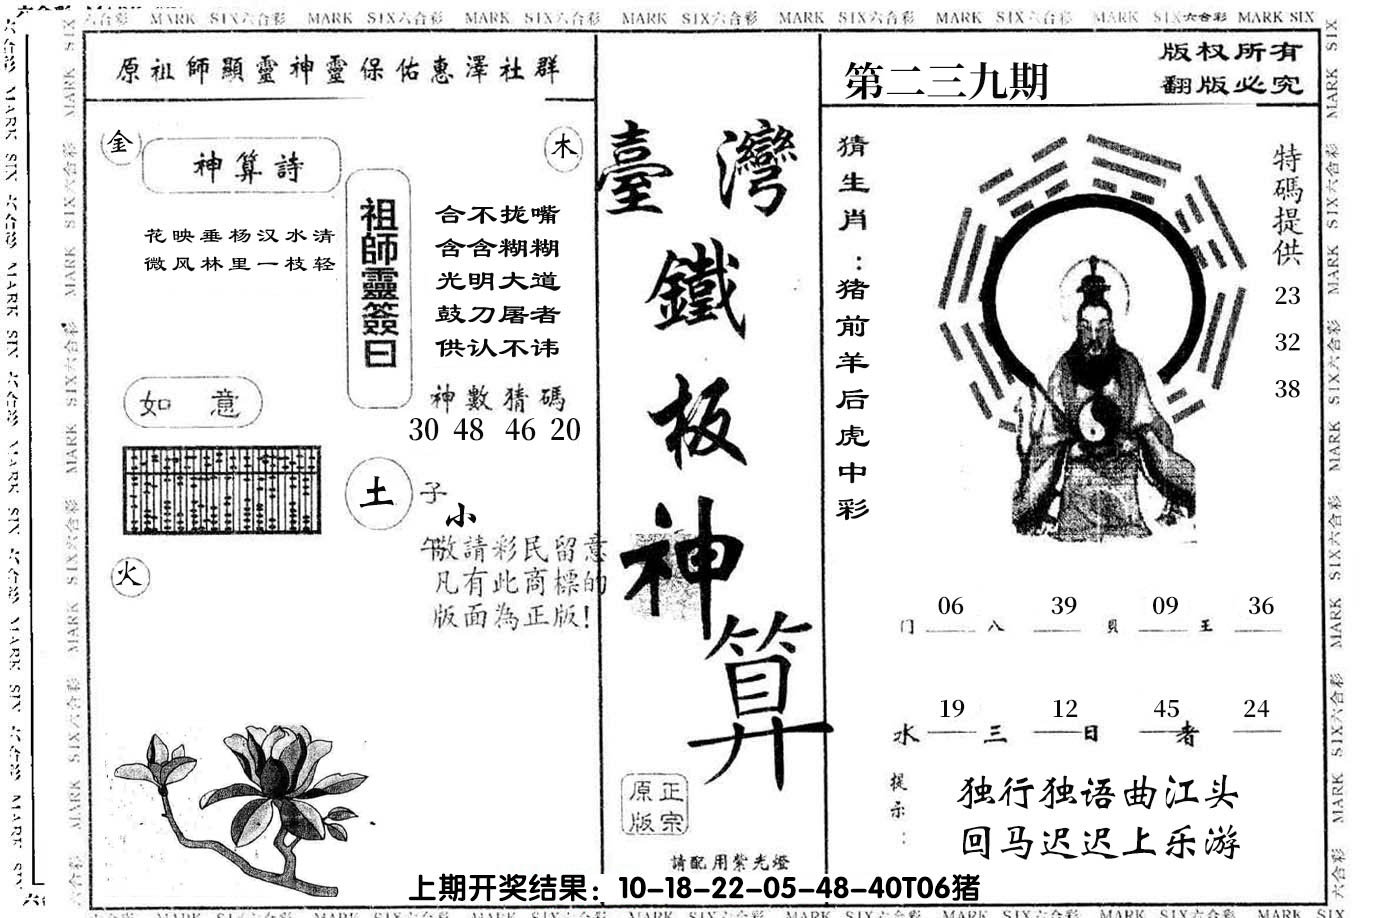 六合彩 MARK SIX六合彩 MARK SIX六合彩 MARK SIX六合彩 MARK SIX六合彩 MARK SIX六合彩 MARK SIX六合彩 MARK SIX六合彩 MARK SIX
原祖師顯靈神靈保佑惠澤社群
金
神算詩
木
花映垂杨汉水清
微风林里一枝轻
祖師靈簽曰
合不拢嘴
含含糊糊
光明大道
鼓刀屠者
供认不讳
神數猜碼
30 48 46 20
如 意
土
子
小
午
敬請彩民留意
凡有此商標的
版面為正版!
火
臺灣
鐵
板
神
算
正宗
原版
請配用紫光燈
第二三九期
版权所有
翻版必究
猜生肖:猪前羊后虎中彩
特碼提供
23
32
38
06 39 09 36
门 八 貝 王
19 12 45 24
水 三 日 者
提示:
独行独语曲江头
回马迟迟上乐游
上期开奖结果：10-18-22-05-48-40T06猪